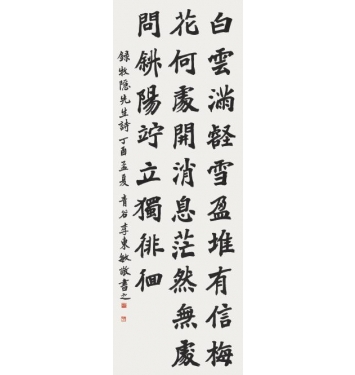 白雲滿壑雪盈堆有信梅
花何處開消息茫然無處
問斜陽竚立獨徘徊
錄牧隐先生詩丁酉孟夏青谷李東敏敬書之